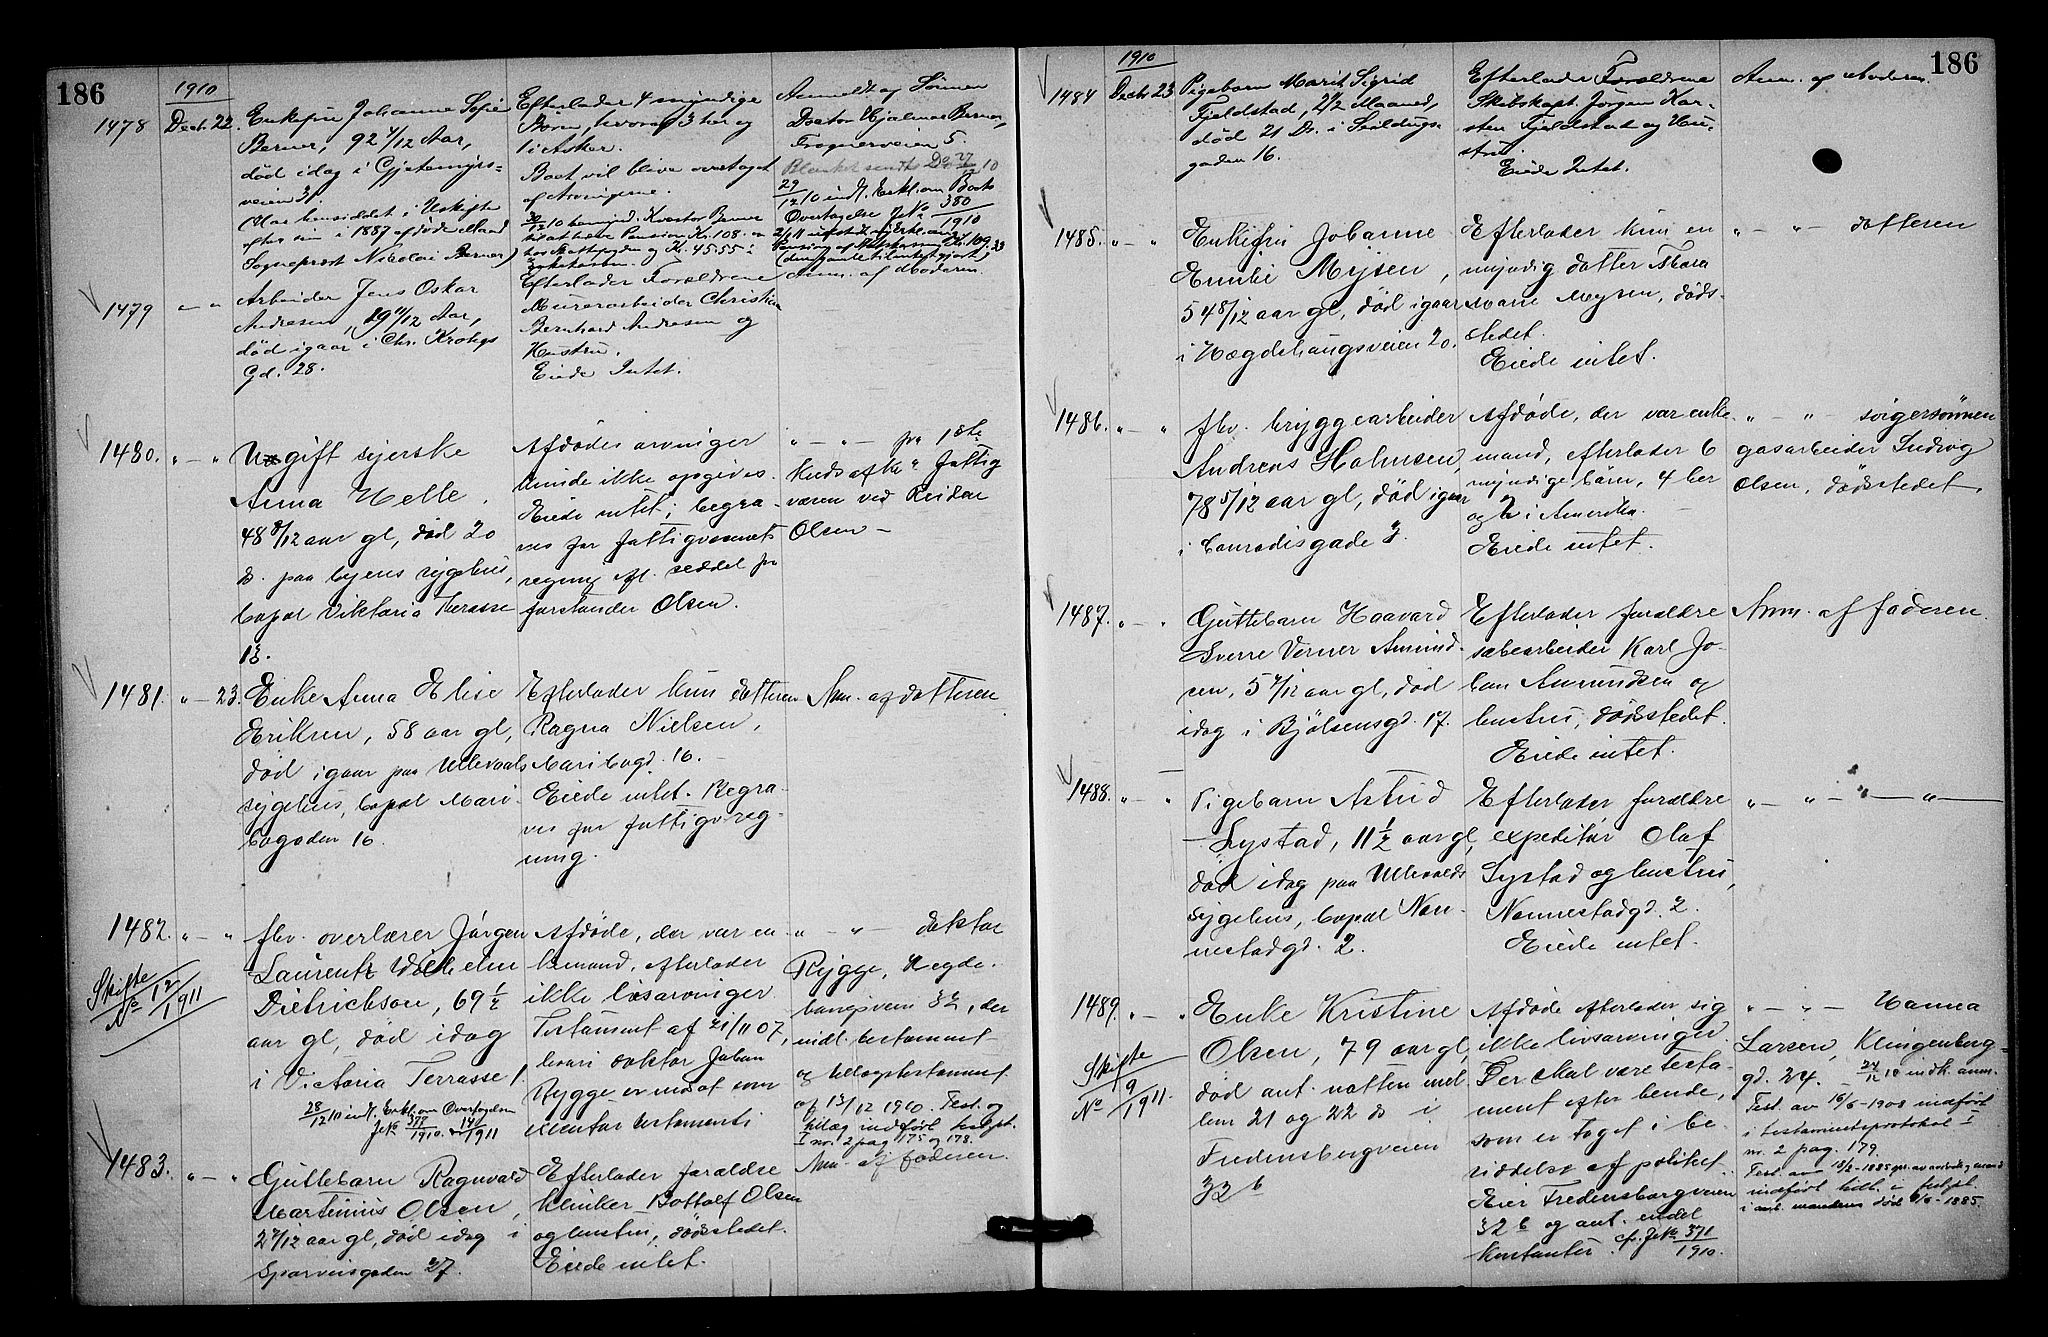 186
1910
1478 Decbr. 22. Enkefru Johanne Sofie
Berner, 92 4/12 Aar,
død idag i Gjetemyrs=
veien 31.
(Har hensiddet i Uskifte
efter sin i 1887 afdøde Mand
Sogneprest Nikolai Berner)
Efterlader 4 myndige
Børn, hvoraf 3 her og
1 i Asker.
Boet vil blive overtaget
af Arvingerne.
Anmeldt af Sønnen
Doktor Hjalmar Berner,
Frognerveien 5.
Overtagelse JNo 380/1910
Anm. af Moderen.
1479 " — " Arbeider Jens Oskar
Andresen, 19 4/12 Aar,
død igaar i Chr. Krohgs
Gd. 28.
Efterlader Forældrene
Murerarbeider Christian
Bernhard Andresen og
Hustru.
Eiede Intet.
1480. " — " Ugift syerske
Anna Helle,
48 8/12 aar gl, død 20
ds. paa byens sygehus,
bopæl Viktoria Terasse
13.
Afdødes arvinger
kunde ikke opgives.
Eiede intet; begra-
ves for fattigvæsenets
regning efl. seddel fra
forstander Olsen.
" — " — fra 18de
Kredsafke. Fattig
væsen ved Reidar
Olsen —
1481. " — 23. Enke Anna Elise
Eriksen, 58 aar gl,
død igaar paa Ullevaals
sygehus, bopæl Mari-
bogaden 16.
Efterlader kun datteren
Ragna Nielsen,
Maribogd. 16. —
Eiede intet. Begra-
ves for fattigv. reg-
ning.
Anm. af datteren
1482. " — " flv. overlærer Jørgen
Laurentz Wilhelm
Dietrichson, 69 1/2
aar gl, død idag
i Victoria Terrasse 1.
Skifte
No 12/1911
28/12 10 indl. Erkl. om Overtagelsen
JNo 377/1910.
Afdøde, der var en
kemand, efterlader
ikke livsarvinger.
Testament af 21/11 07,
hvori doktor Johan
Rygge er indsat som
" — " — doktor
Rygge, Hegde-
haugsveien 32, der
indl. testament
og tillægstestament
af 13/12 1910. Test. og
tillæg indført testpt.
I nr. 2 pag 175 og 178.
1483. " — " Guttebarn Ragnvald
Martinius Olsen,
2 4/12 aar gl, død idag i
Sparveisgaden 27.
Efterlader forældre
klinker Bottolf Olsen
og hustru, dødsstedet.
Eiede intet.
Anm. af faderen.
186
1910
1484 Decbr. 23 Pigebarn Marit Sigrid
Fjeldstad, 2 1/2 Maaned,
død 21 Ds. i Seildugs-
gaden 16.
Efterlader Forældrene
Skibskapt. Jørgen Kar-
sten Fjeldstad og Hu-
stru.
Eiede Intet.
Anm. af Moderen.
1485. " — " Enkefru Johanne
Emilie Mejsen,
54 8/12 aar gl, død igaar
i Hægdehaugsveien 20.
Efterlader kun en
myndig datter Thora
Marie Meysen, døds-
stedet.
Eiede intet.
" — " — datteren
1486. " — " flv. bryggearbeider
Andreas Holmsen,
78 5/12 aar gl, død igaar
i Conradisgade 3.
Afdøde, der var enke
mand, efterlader 6
myndige børn, 4 her
og 2 i Amerika.
Eiede intet.
" — " — svigersønnen
gasarbeider Ludvig
Olsen, dødsstedet.
1487. " — " Guttebarn Haavard
Sverre Verner Amund-
sen, 5 4/12 aar gl, død
idag i Bjølsensgd. 17.
Efterlader forældre
sæbearbeider Karl Jo-
han Amundsen og
hustru, dødsstedet.
Eiede intet.
Anm. af faderen.
1488. " — " Pigebarn Astrid
Lystad, 11 1/2 aar gl,
død idag paa Ullevaals
sygehus, bopæl Non-
nestadgd. 2.
Efterlader forældre
expeditør Olaf
Lystad og hustru,
Nonnestadgd. 2.
Eiede intet.
" — " — " — " —
1489. " — " Enke Kristine
Olsen, 79 aar gl,
død ant. natten mel
lem 21 og 22 ds i
Fredensborgveien
32 b
Skifte
No 9/1911.
Afdøde efterlader sig
ikke livsarvinger.
Der skal være testa-
ment efter hende,
som er taget i be-
siddelse af politiet.
Eier Fredensborgveien
32 b og ant. endel
kontanter. cfr. JNo 371/1910.
" — " — Hanna
Larsen, Klingenberg-
gd. 24.
Test. av 16/6-1908 indført
i testamentsprotokol I
nr. 2 pag. 179.